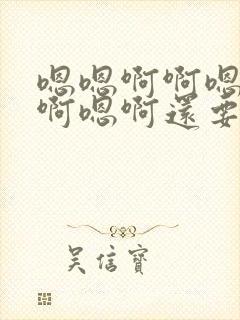 嗯嗯啊啊嗯
啊嗯啊還要
吴信寳